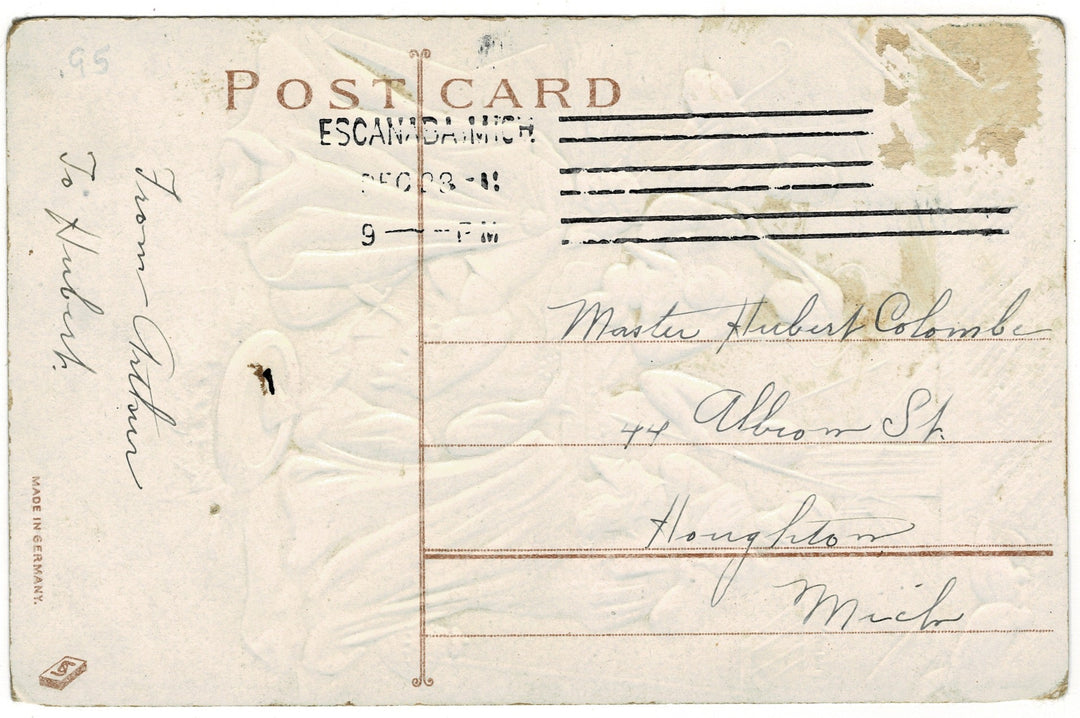 95
POST CARD
ESCANABA, MICH.
DEC 23 - 11
9 — PM
To Hubert.
From Arthur
Master Hubert Colombe
44 Albion St.
Houghton
Mich
MADE IN GERMANY.